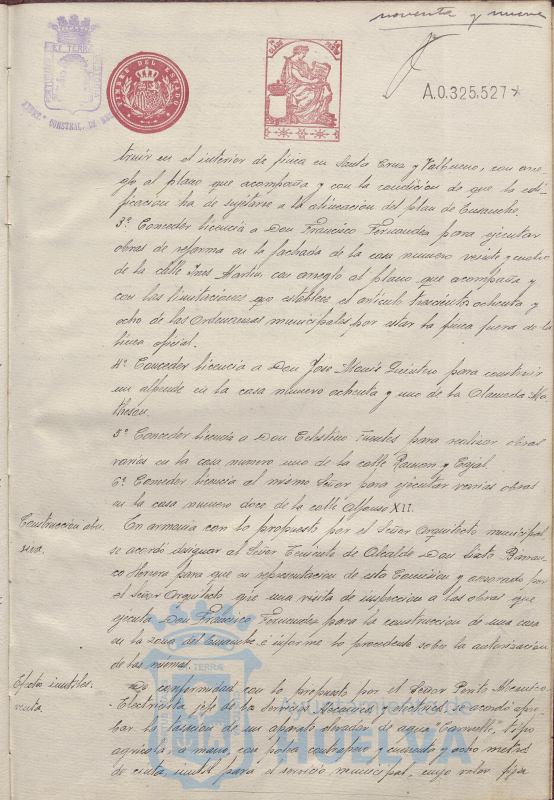 noventa y nueve
TIMBRE DEL ESTADO
A.0.325.527*
truir en el interior de finca en Santa Cruz y Valbueno, con arre-
glo al plano que acompaña y con la condición de que la edi-
ficación ha de sujetarse a la alineación del plan de Ensanche.
3ª Conceder licencia a Don Francisco Fernandez para ejecutar
obras de reforma en la fachada de la casa numero veinte y cuatro
de la calle Ines Martin, con arreglo al plano que acompaña y
con las limitaciones que establece el artículo trescientos ochenta y
ocho de las Ordenanzas municipales por estar la finca fuera de la
linea oficial.
4ª Conceder licencia a Don Jose Monis Quintero para construir
un alpende en la casa numero ochenta y uno de la Alameda Ma-
theson.
5ª Conceder licencia a Don Celestino Fuentes para realizar obras
varias en la casa numero uno de la calle Ramon y Cajal.
6ª Conceder licencia al mismo Señor para ejecutar varias obras
en la casa numero doce de la calle Alfonso XII.
Construcción abu-
siva.
En armonia con lo propuesto por el Señor Arquitecto municipal
se acordó designar al Señor Teniente de Alcalde Don Sixto Barran-
co Herrera para que en representacion de esta Comisión y asesorado por
el Señor Arquitecto gire una visita de inspeccion a las obras que
ejecuta Don Francisco Fernandez para la construccion de una casa
en la zona del Ensanche, é informe lo procedente sobre la autorización
de las mismas.
Efectos inutiles.
venta.
De conformidad con lo propuesto por el Señor Perito Mecanico
Electricista jefe de los servicios Mecanicos y electricos se acordó apro-
bar la tasacion de un aparato elevador de agua "Carruelle", tipo
agricola a mano, con polea contrapeso y cuarenta y ocho metros
de cinta, inutil para el servicio municipal, cuyo valor fija
Ayuntamiento de
HUELVA